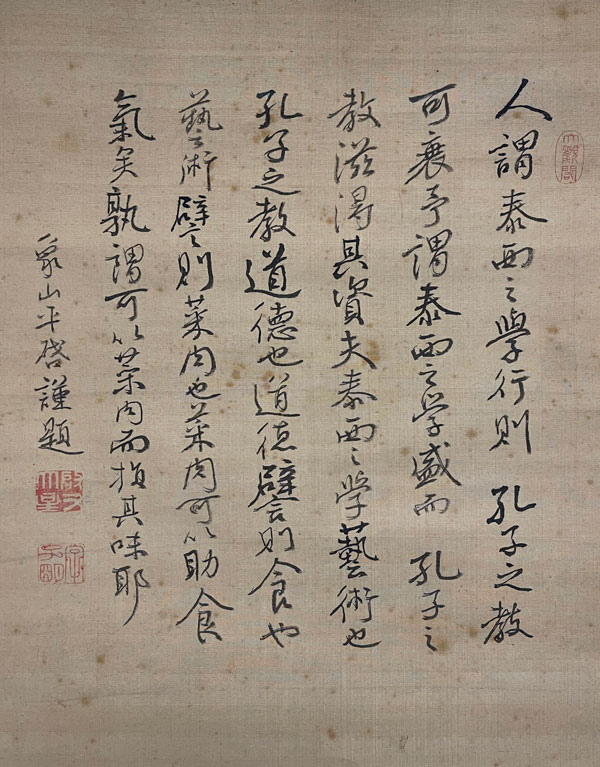 人謂泰西之學行則孔子之教
可衰予謂泰西之学盛而孔子之
教滋得其資夫泰西之学藝術也
孔子之教道德也道徳譬則食也
藝術譬則菜肉也菜肉可以助食
氣矣孰謂可以菜肉而損其味耶
象山平啓謹題